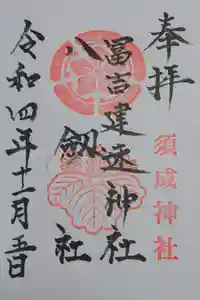 奉拝
須成神社
冨吉建速神社
八劔社
令和四年十一月五日